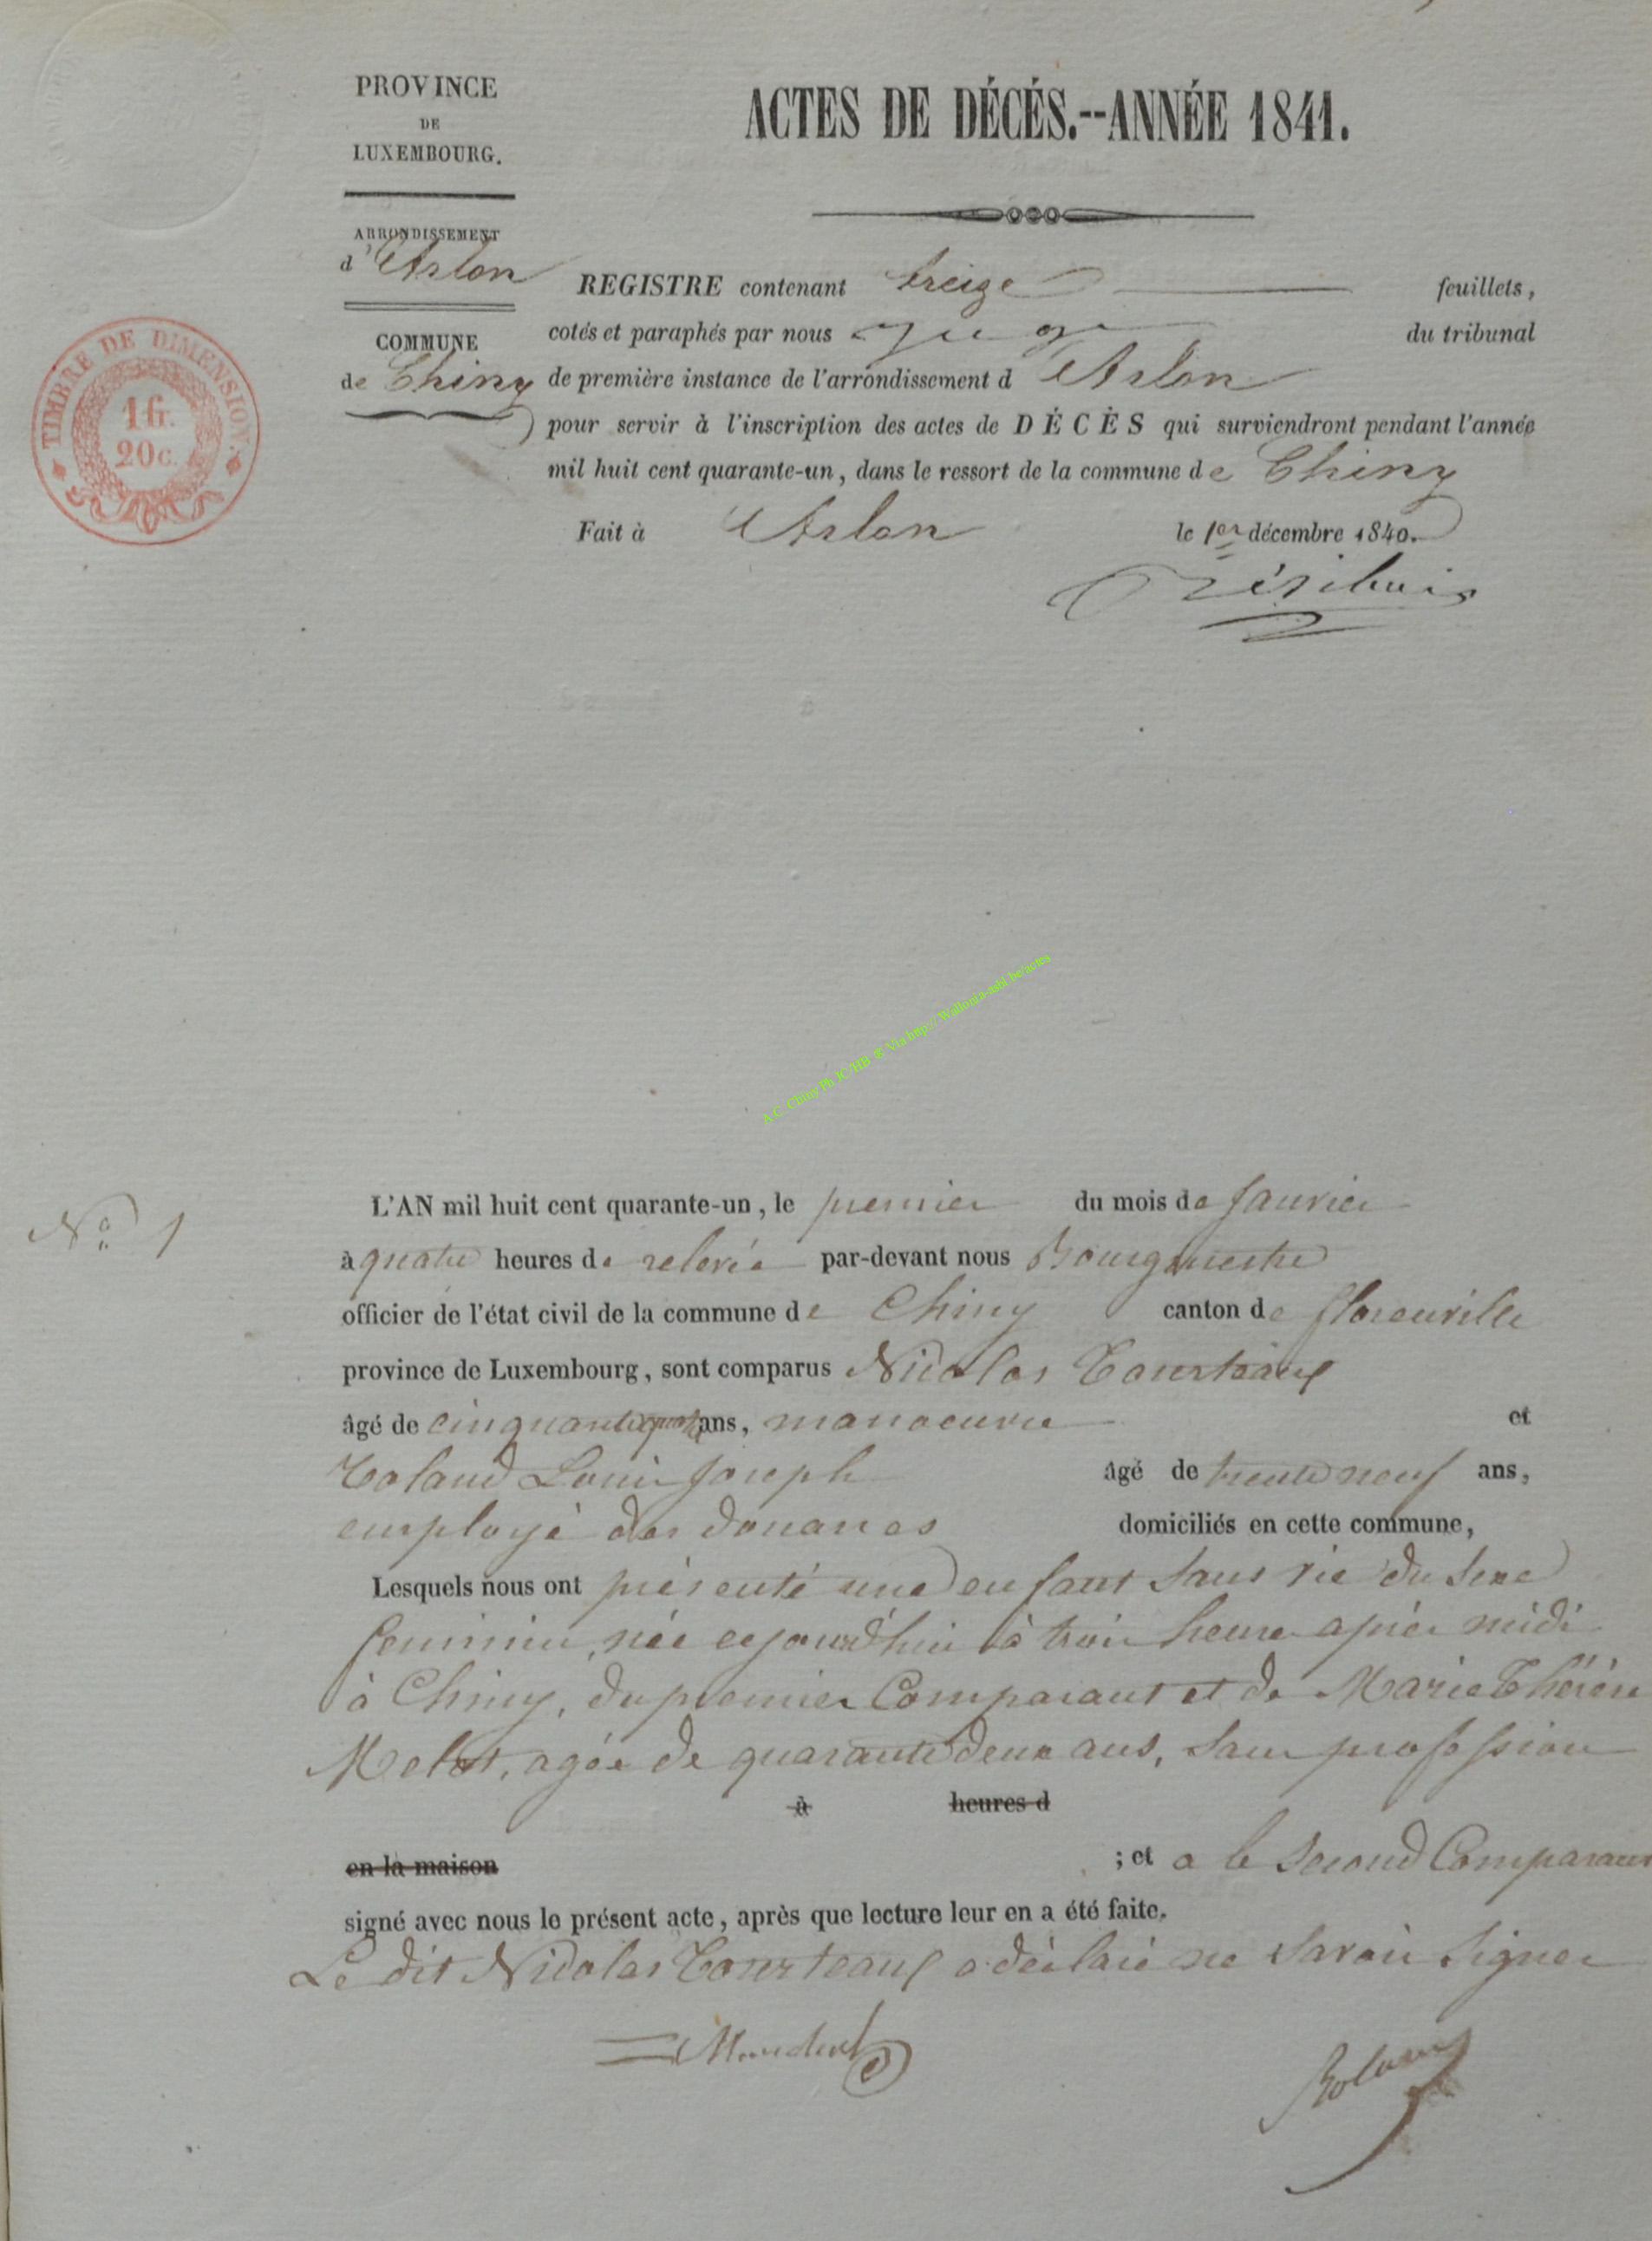 PROVINCE
DE
LUXEMBOURG.
ARRONDISSEMENT
d'Arlon
COMMUNE
de Chiny
TIMBRE DE DIMENSION.
1 G.
20 c.
ACTES DE DÉCÉS.--ANNÉE 1841.
REGISTRE contenant treize feuillets,
cotés et paraphés par nous juge du tribunal
de première instance de l'arrondissement d'Arlon
pour servir à l'inscription des actes de DÉCÈS qui surviendront pendant l'année
mil huit cent quarante-un, dans le ressort de la commune de Chiny
Fait à Arlon le 1er décembre 1840.
A.C. Chiny Ph JC HB & Via http:// Wallonia-asbl.be/actes
No 1
L'AN mil huit cent quarante-un, le premier du mois de Janvier
à quatre heures de relevée par-devant nous Bourgmestre
officier de l'état civil de la commune de Chiny canton de florenville
province de Luxembourg, sont comparus Nicolas Tourteaux
âgé de cinquante quatre ans, manoeuvre et
Roland Louis Joseph âgé de trente neuf ans,
employé des douanes domiciliés en cette commune,
Lesquels nous ont présenté une enfant sans vie du sexe
feminin, née cejourd'hui à trois heure après midi
à Chiny, du premier Comparant et de Marie Thérèse
Melot, agée de quarante deux ans, sans profession
à heures d
en la maison ; et a le second Comparant
signé avec nous le présent acte, après que lecture leur en a été faite.
Le dit Nicolas Tourteaux a déclaré ne savoir signer
Roland